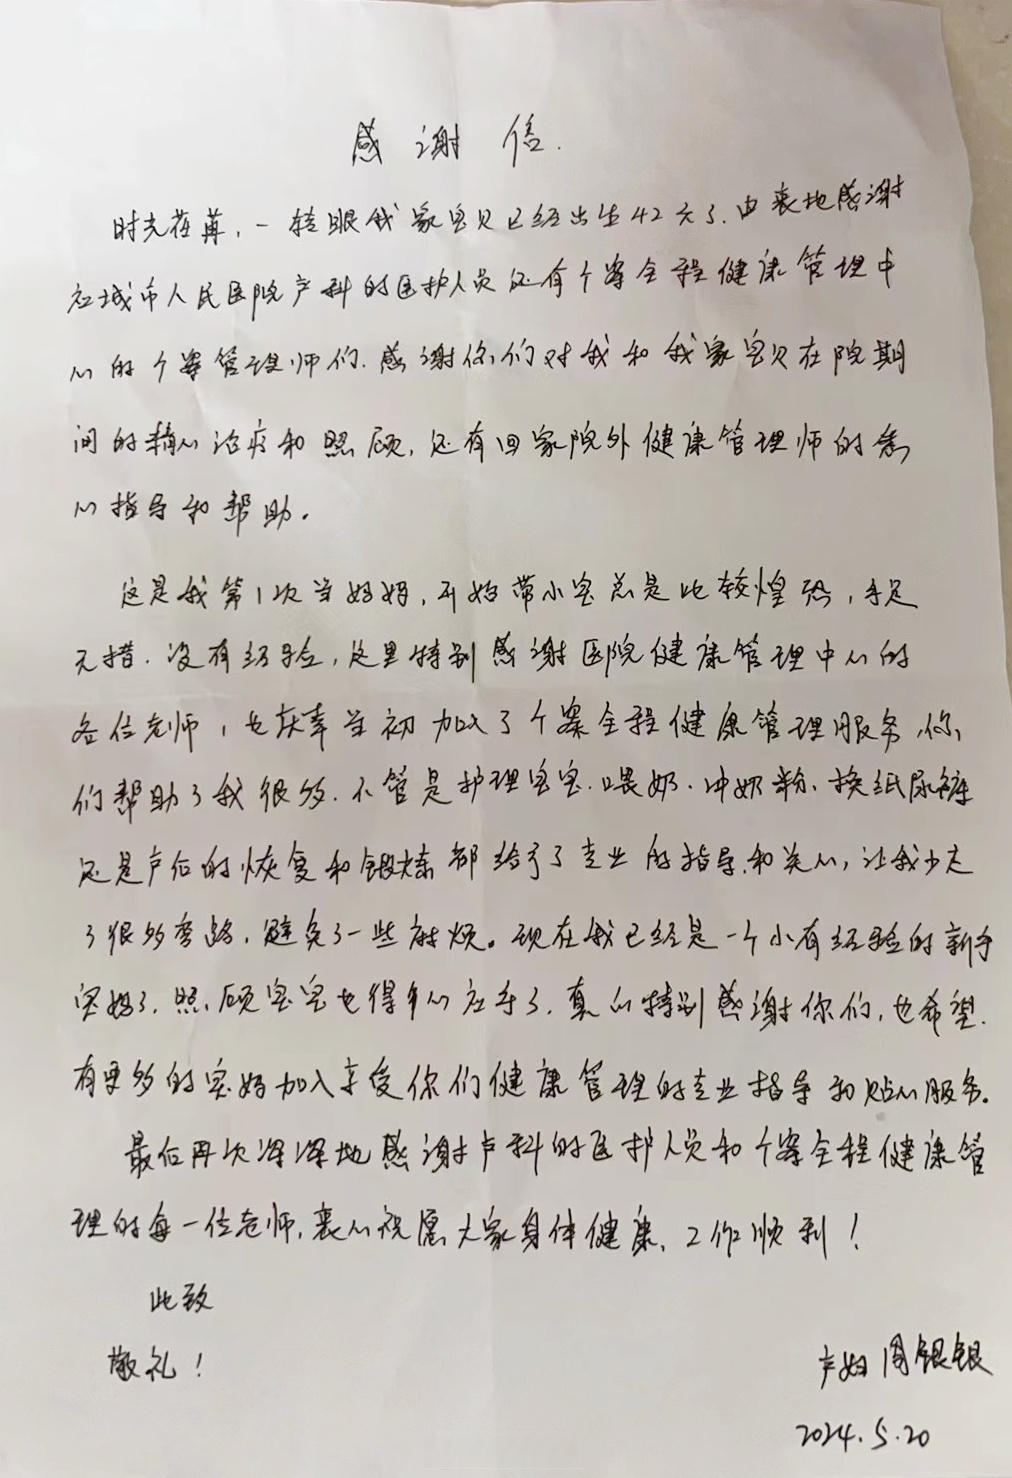 感谢信.
时光荏苒,一转眼我家宝贝已经出生42天了.由衷地感谢
应城市人民医院产科的医护人员还有个案全程健康管理中
心的个案管理师们.感谢你们对我和我家宝贝在院期
间的精心治疗和照顾,还有回家院外健康管理师的悉
心指导和帮助。
这是我第1次当妈妈,开始带小宝总是比较惶恐,手足
无措.没有经验,这里特别感谢医院健康管理中心的
各位老师,也庆幸当初加入了个案全程健康管理服务,你
们帮助了我很多.不管是护理宝宝.喂奶.冲奶粉.换纸尿裤
还是产后的恢复和锻炼都给予了专业的指导.和关心,让我少走
了很多弯路,避免了一些麻烦。现在我已经是一个小有经验的新手
宝妈了.照顾宝宝也得心应手了.真的特别感谢你们,也希望.
有更多的宝妈加入享受你们健康管理的专业指导和贴心服务。
最后再次深深地感谢产科的医护人员和个案全程健康管
理的每一位老师,衷心祝愿大家身体健康、工作顺利!
此致
敬礼!
产妇周银银
2024.5.20